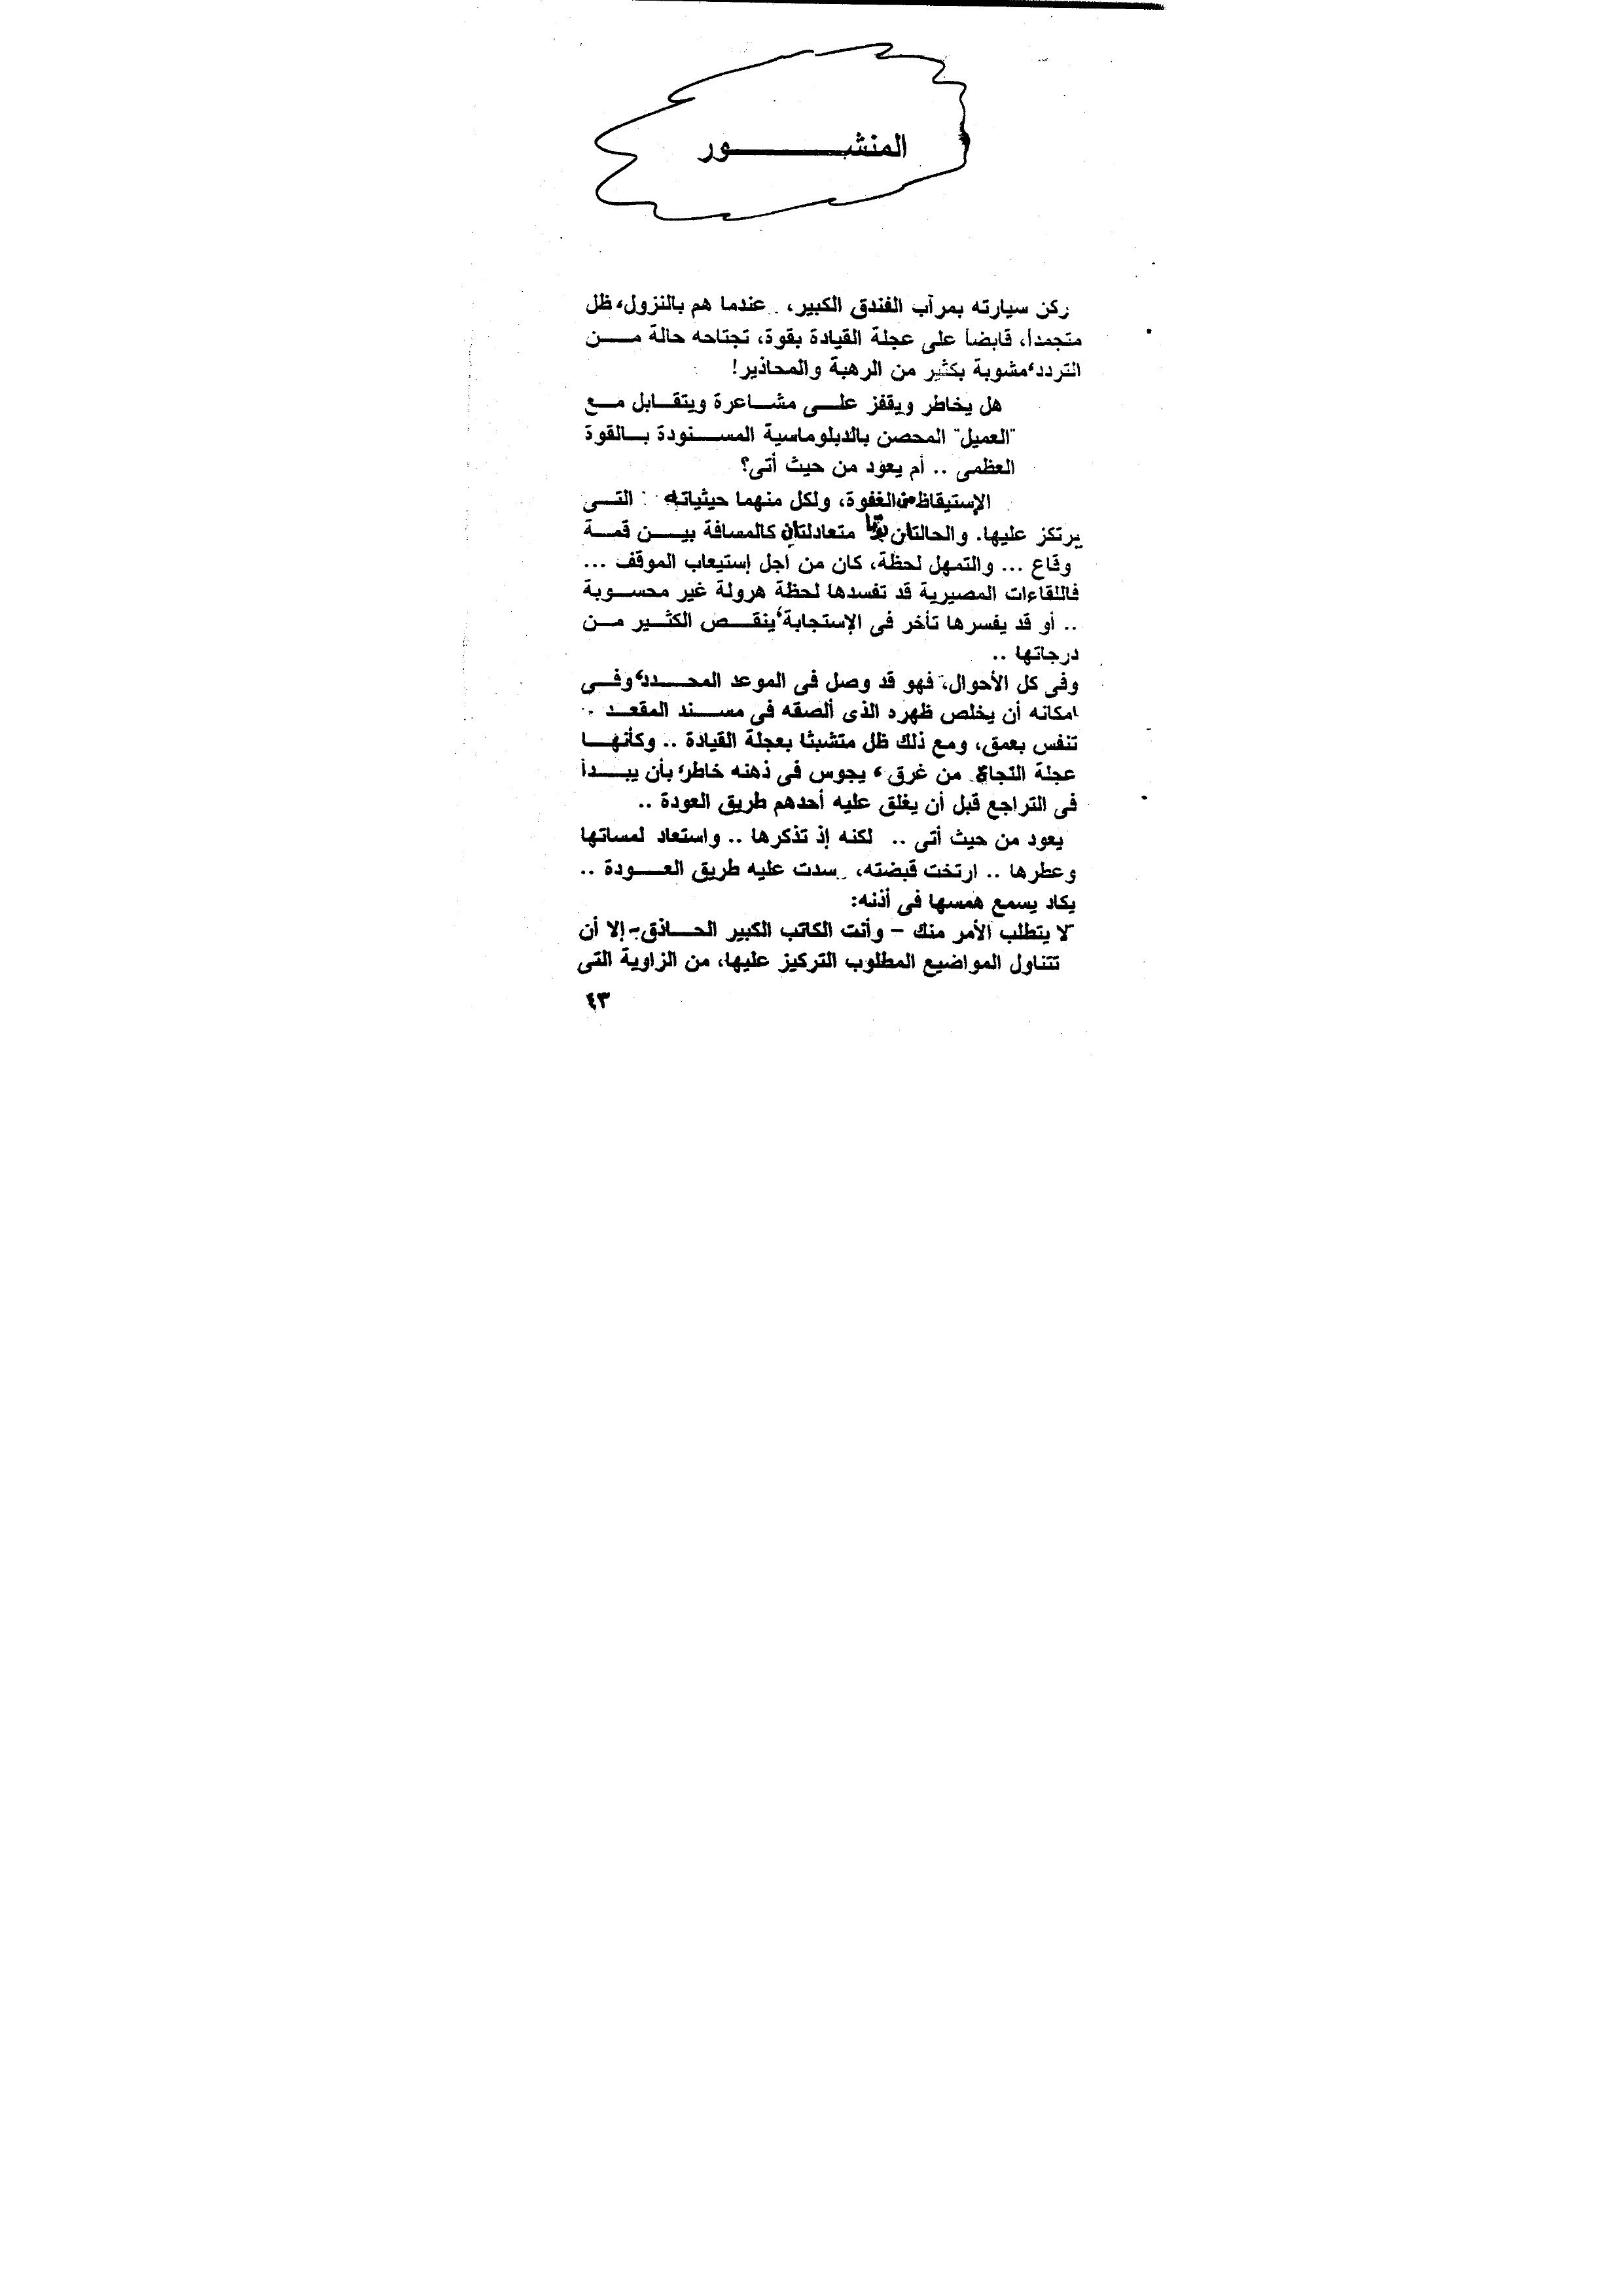 المنشور
ركن سيارته بمرآب الفندق الكبير، عندما هم بالنزول، ظل
متجمداً، قابضاً على عجلة القيادة بقوة، تجتاحه حالة من
التردد، مشوبة بكثير من الرهبة والمحاذير!
هل يخاطر ويقفز على مشاعرة ويتقابل مع
"العميل" المحصن بالدبلوماسية المسنودة بالقوة
العظمى .. أم يعود من حيث أتى؟
الإستيقاظ من الغفوة، ولكل منهما حيثياته التى
يرتكز عليها. والحالتان متعادلتان كالمسافة بين قمة
وقاع ... والتمهل لحظة، كان من أجل إستيعاب الموقف ...
فاللقاءات المصيرية قد تفسدها لحظة هرولة غير محسوبة
.. أو قد يفسرها تأخر فى الإستجابة، ينقص الكثير من
درجاتها ..
وفى كل الأحوال، فهو قد وصل فى الموعد المحدد، وفى
امكانه أن يخلص ظهره الذى ألصقه فى مسند المقعد ..
تنفس بعمق، ومع ذلك ظل متشبثا بعجلة القيادة .. وكأنها
عجلة النجاة من غرق، يجوس فى ذهنه خاطر، بأن يبدأ
فى التراجع قبل أن يغلق عليه أحدهم طريق العودة ..
يعود من حيث أتى .. لكنه إذ تذكرها .. واستعاد لمساتها
وعطرها .. ارتخت قبضته، سدت عليه طريق العودة ..
يكاد يسمع همسها فى أذنه:
"لا يتطلب الأمر منك – وأنت الكاتب الكبير الحاذق – إلا أن
تتناول المواضيع المطلوب التركيز عليها، من الزاوية التى
٤٣